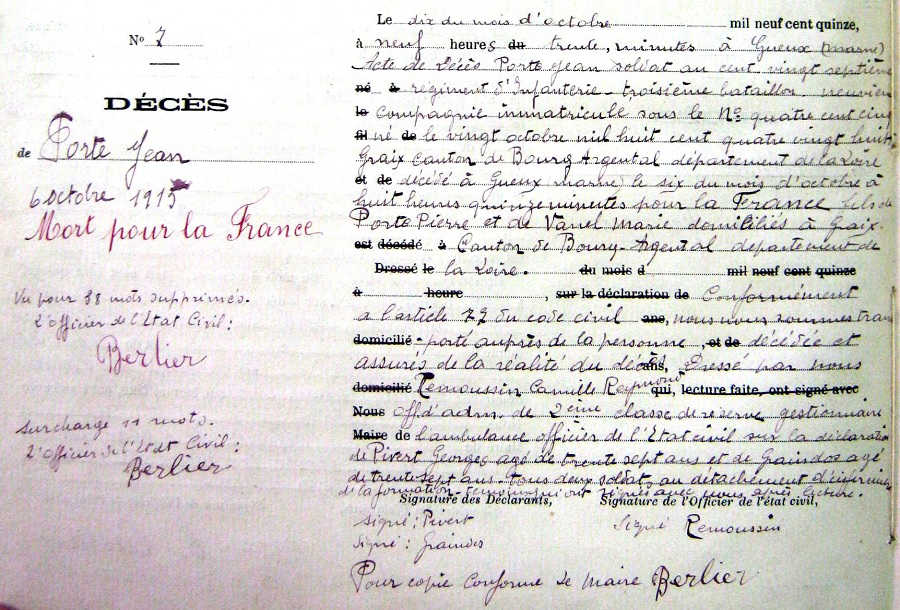 N° 7
DÉCÈS
de Porte Jean
6 octobre 1915
Mort pour la France
Vu pour 38 mots supprimés.
L'officier de l'Etat Civil:
Berlier
Surcharge 11 mots.
L'officier de l'Etat Civil:
Berlier
Le dix du mois d'octobre mil neuf cent quinze,
à neuf heures du trente, minutes à Gueux (marne)
Acte de Décès Porte Jean soldat au cent vingt septième
né à régiment d'Infanterie - troisième bataillon neuvien
le Compagnie immatriculé sous le N° quatre cent cinq
fil né de le vingt octobre mil huit cent quatre vingt huit
Graix Canton de Bourg Argental département de la Loire
et de décédé à Gueux marne) le six du mois d'octobre à
huit heures quinze minutes pour la France fils de
Porte Pierre et de Vanel Marie domiciliés à Graix.
est décédé à Canton de Bourg-Argental département de
Dressé le la Loire. du mois d mil neuf cent quinze
à heure , sur la déclaration de Conformément
a l'article 77 du code civil ans, nous nous sommes tran
domicilié - porté auprès de la personne, et de décédée et
assurés de la réalité du décès ans, Dressé par nous
domicilié Remoussin Camille Raymond qui, lecture faite, ont signé avec
Nous off. d'adm. de 2ème classe de réserve gestionnaire
Maire de l'ambulance officier de l'Etat civil sur la déclaration
de Pivert Georges agé de trente sept ans et de Graindos agé
de trente sept ans - tous deux soldats au détachement d'infirmiers
de la formation - témoins qui ont signés avec nous après lecture.
Signature des Déclarants,
Signature de l'Officier de l'état civil,
signé: Pivert
Signé Remoussin
Signé: Graindos
Pour copie Conforme Le Maire Berlier